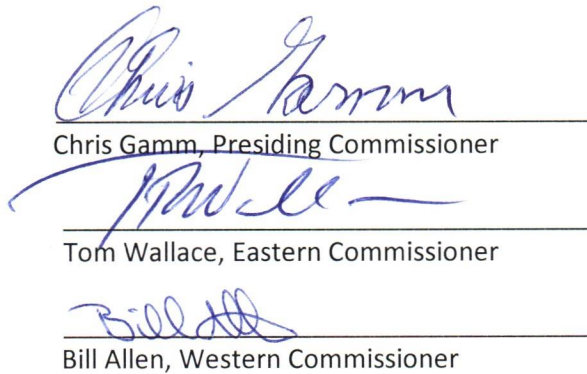 Chris Gamm
Chris Gamm, Presiding Commissioner
Tom Wallace, Eastern Commissioner
Bill Allen, Western Commissioner